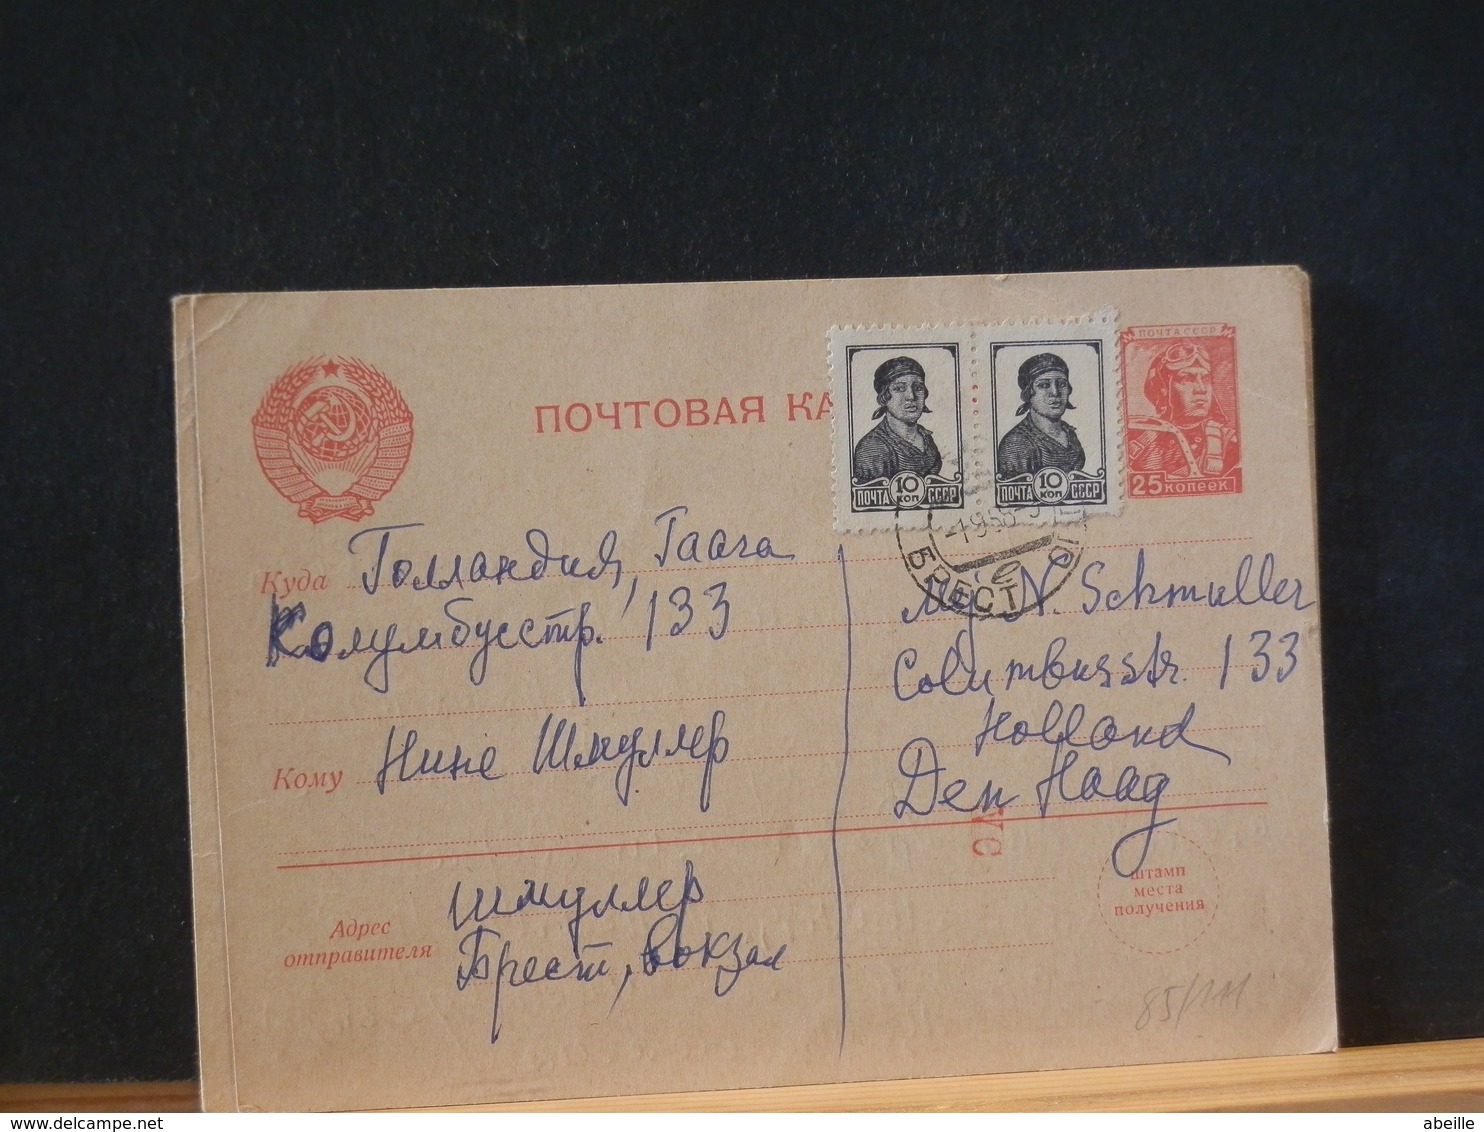 ПОЧТОВАЯ КА
ПОЧТА 10 КОП СССР
ПОЧТА 10 КОП СССР
ПОЧТА СССР
25 копеек
БРЕСТ
Куда Голландия, Гаага
Колумбусстр. 133
Кому Нине Шмуллер
N. Schmuller
Columbusstr. 133
Holland
Den Haag
Адрес отправителя
Шмуллер
Брест, вокзал
штамп
места
получения
85/1111
delcampe.net
abeille